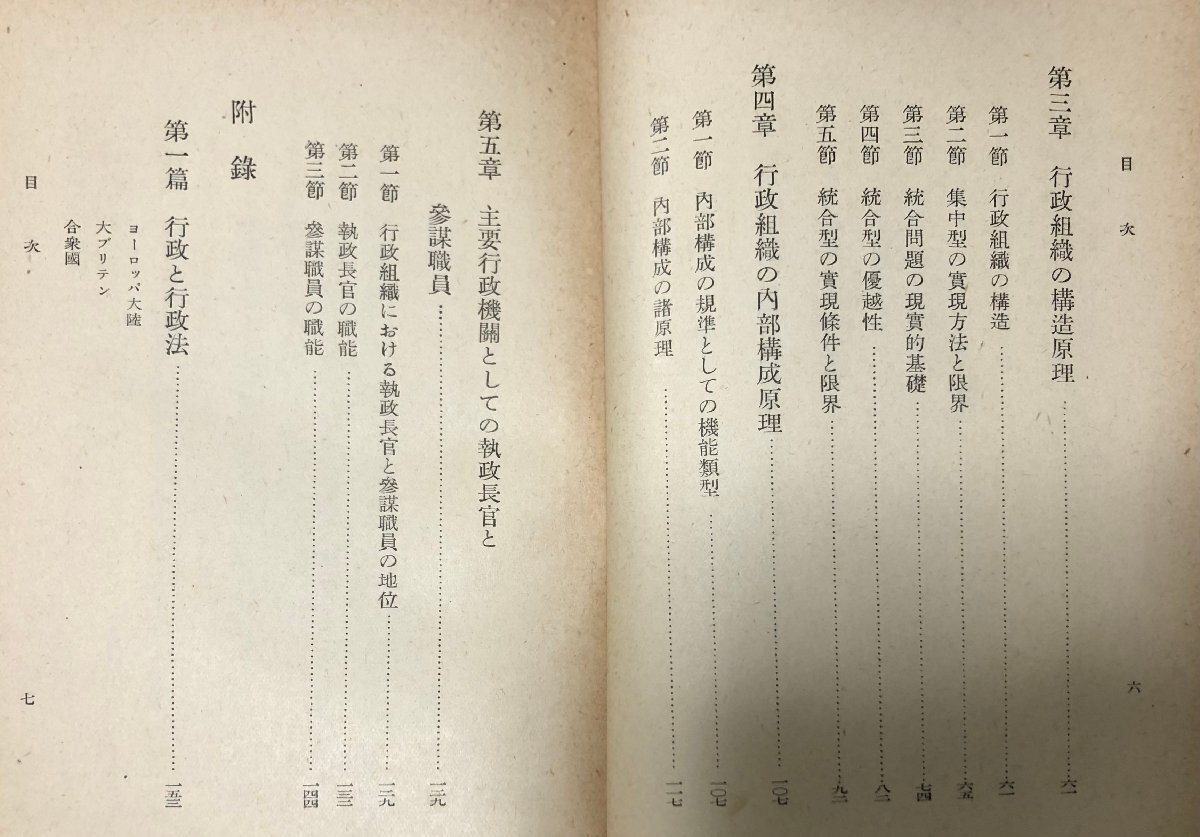 目次
第三章 行政組織の構造原理……六一
第一節 行政組織の構造……六一
第二節 集中型の實現方法と限界……六五
第三節 統合問題の現實的基礎……七四
第四節 統合型の優越性……八二
第五節 統合型の實現條件と限界……九二
第四章 行政組織の內部構成原理……一〇七
第一節 內部構成の規準としての機能類型……一〇七
第二節 內部構成の諸原理……一一七
六
第五章 主要行政機關としての執政長官と
參謀職員……一二九
第一節 行政組織における執政長官と參謀職員の地位……一二九
第二節 執政長官の職能……一三三
第三節 參謀職員の職能……一四四
附錄
第一篇 行政と行政法……一五三
ヨーロッパ大陸
大ブリテン
合衆國
目次
七